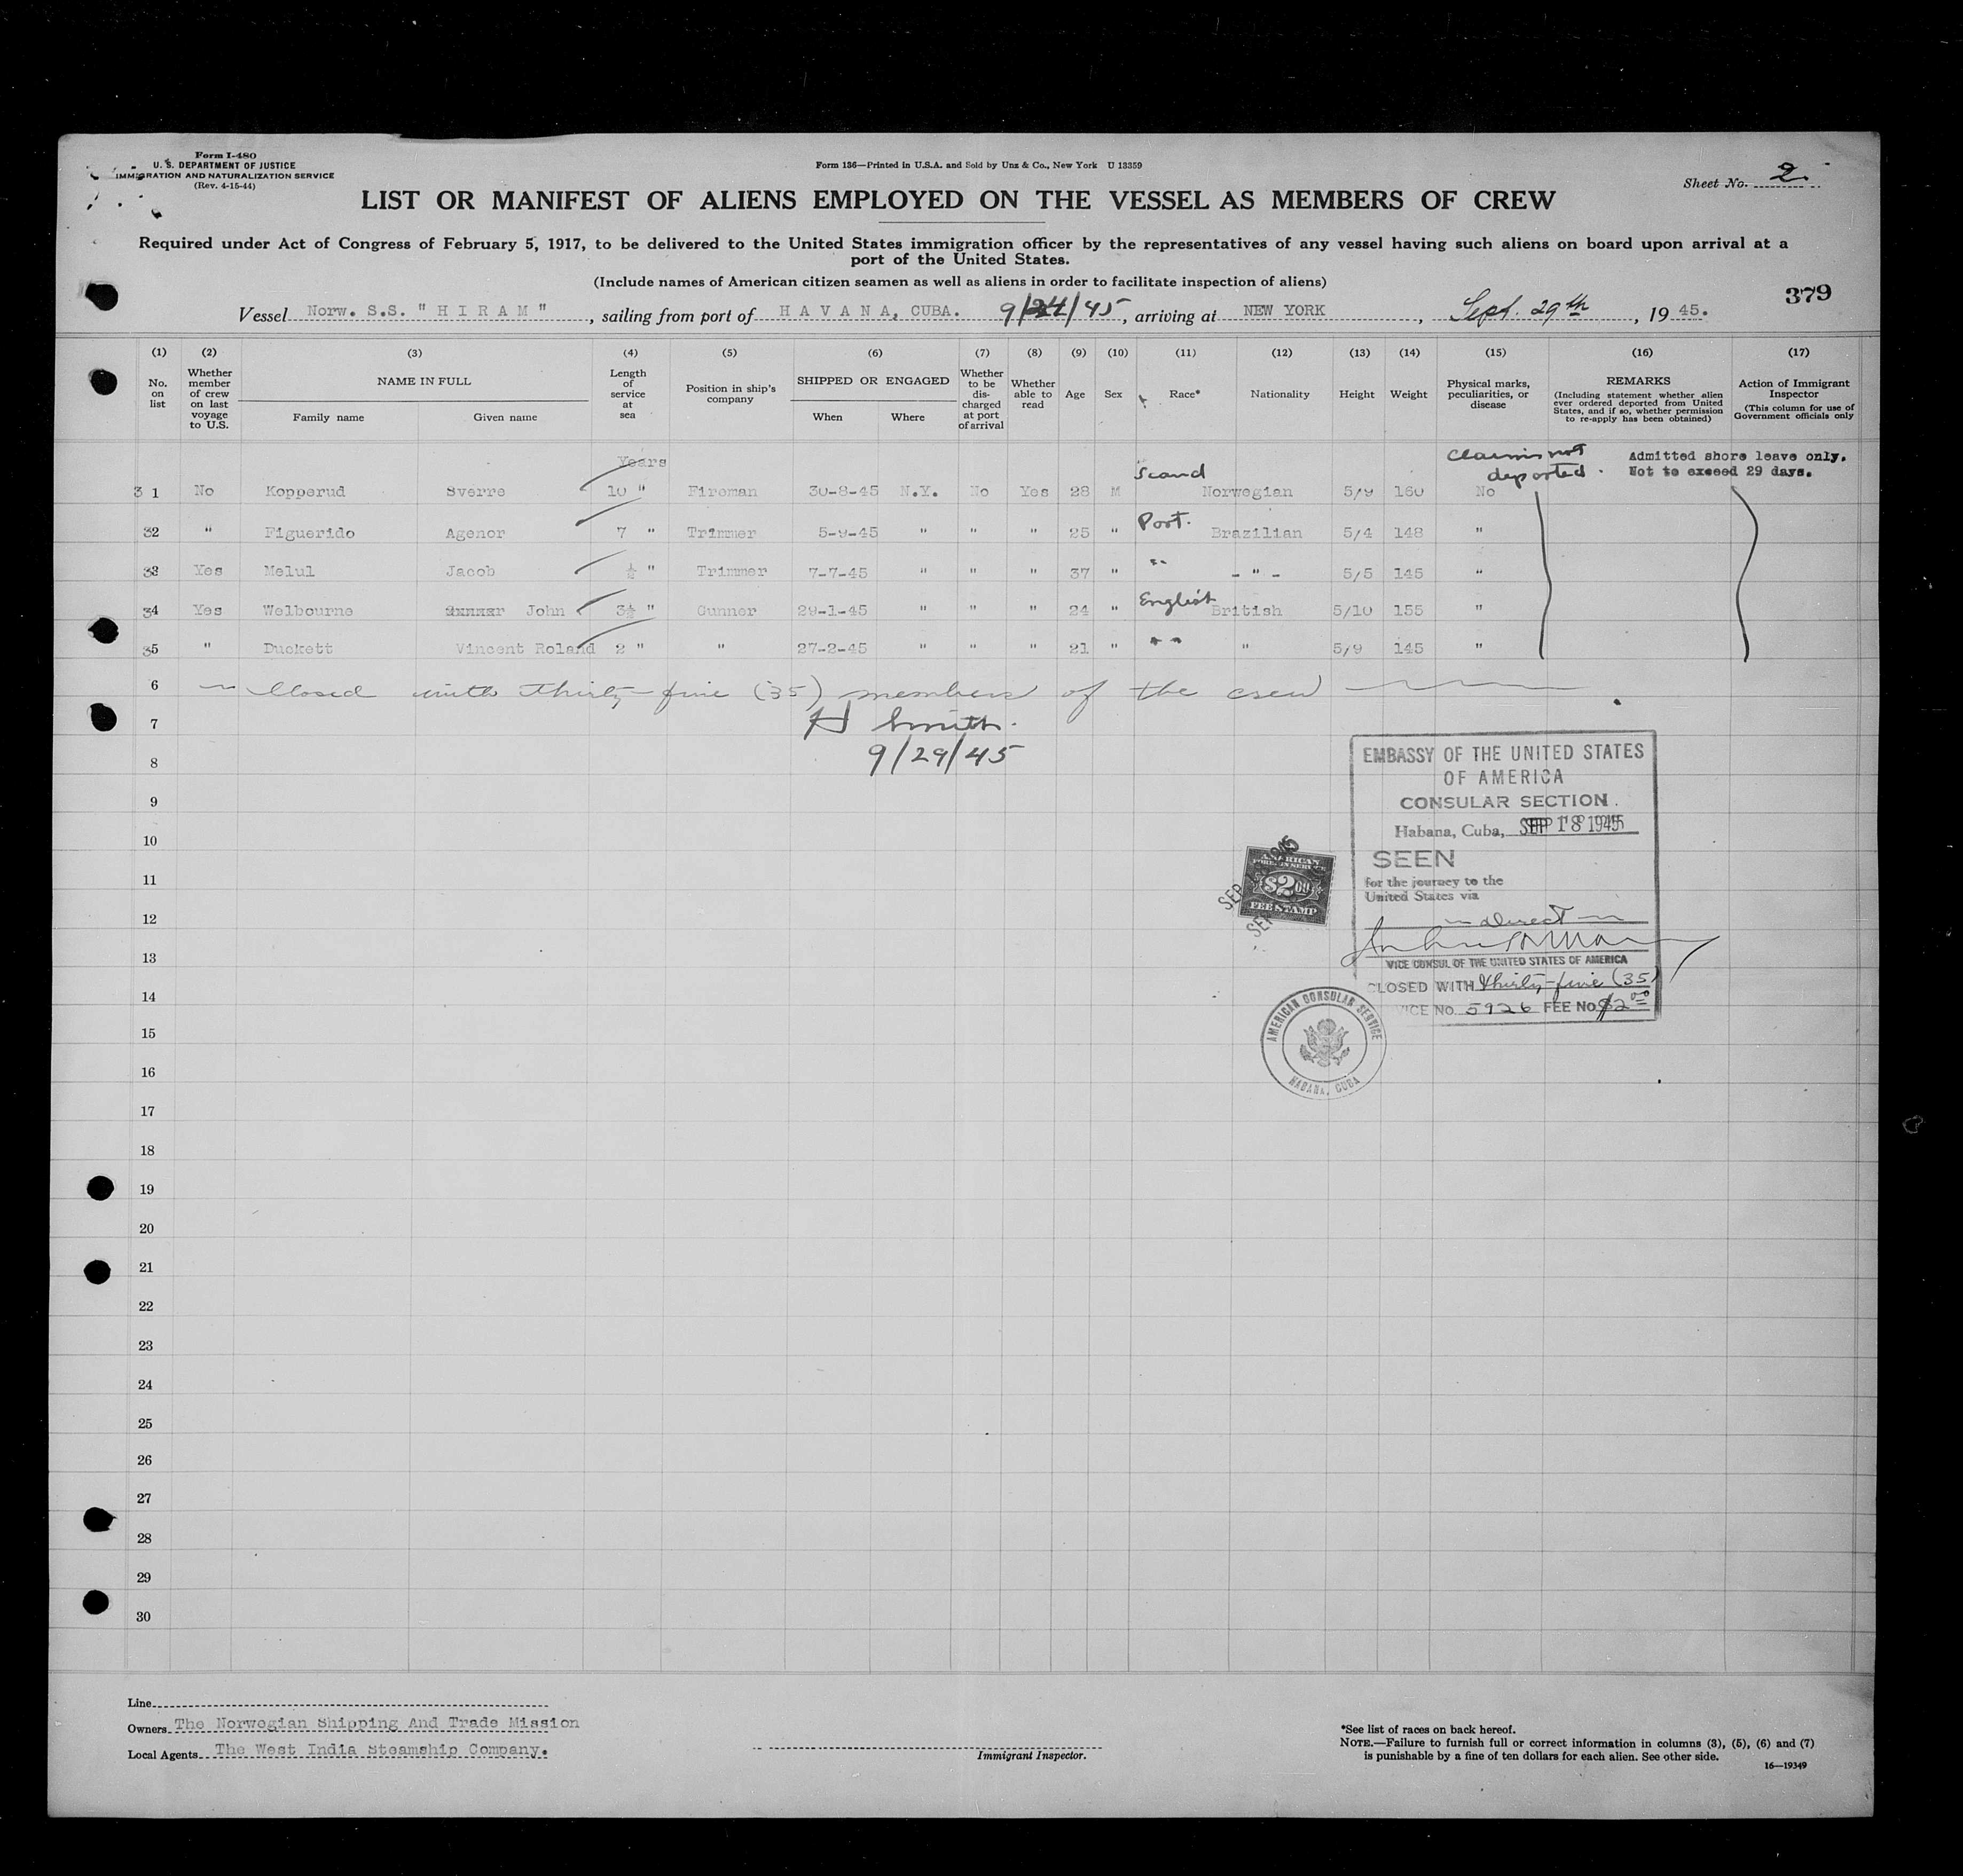 Form I-480
U. S. DEPARTMENT OF JUSTICE
IMMIGRATION AND NATURALIZATION SERVICE
(Rev. 4-15-44)
Form 136—Printed in U.S.A. and Sold by Unz & Co., New York U 13359
Sheet No. 2.
LIST OR MANIFEST OF ALIENS EMPLOYED ON THE VESSEL AS MEMBERS OF CREW
Required under Act of Congress of February 5, 1917, to be delivered to the United States immigration officer by the representatives of any vessel having such aliens on board upon arrival at a
port of the United States.
(Include names of American citizen seamen as well as aliens in order to facilitate inspection of aliens)
379
Vessel Norw. S.S. " H I R A M " , sailing from port of H A V A N A, CUBA. 9/24/45, arriving at NEW YORK , Sept. 29th , 19 45.
(1) (2) (3) (4) (5) (6) (7) (8) (9) (10) (11) (12) (13) (14) (15) (16) (17)
No. on list
Whether member of crew on last voyage to U.S.
NAME IN FULL
Family name Given name
Length of service at sea
Position in ship's company
SHIPPED OR ENGAGED
When Where
Whether to be discharged at port of arrival
Whether able to read
Age
Sex
Race*
Nationality
Height
Weight
Physical marks, peculiarities, or disease
REMARKS
(Including statement whether alien ever ordered deported from United States, and if so, whether permission to re-apply has been obtained)
Action of Immigrant Inspector
(This column for use of Government officials only
Years
Claims not deported.
Admitted shore leave only.
Not to exceed 29 days.
31 No Kopperud Sverre 10 " Fireman 30-8-45 N.Y. No Yes 28 M Scand Norwegian 5/9 160 No
32 " Figuerido Agenor 7 " Trimmer 5-9-45 " " " 25 " Port. Brazilian 5/4 148 "
33 Yes Melul Jacob ½ " Trimmer 7-7-45 " " " 37 " " - " - 5/5 145 "
34 Yes Welbourne John 3½ " Gunner 29-1-45 " " " 24 " English British 5/10 155 "
35 " Duckett Vincent Roland 2 " " 27-2-45 " " " 21 " " " " 5/9 145 "
6 Closed with thirty-five (35) members of the crew
7 H Smith.
8 9/29/45
9
10
11
12
13
14
15
16
17
18
19
20
21
22
23
24
25
26
27
28
29
30
EMBASSY OF THE UNITED STATES
OF AMERICA
CONSULAR SECTION.
Habana, Cuba, SEP 18 1945
SEEN
for the journey to the
United States via
direct
VICE CONSUL OF THE UNITED STATES OF AMERICA
CLOSED WITH thirty-five (35)
VICE NO. 5926 FEE NO. $2.00
AMERICAN
FOREIGN SERVICE
$2.00
FEE STAMP
AMERICAN CONSULAR SERVICE
HABANA, CUBA
Line
Owners The Norwegian Shipping And Trade Mission
Local Agents The West India Steamship Company.
Immigrant Inspector.
*See list of races on back hereof.
NOTE.—Failure to furnish full or correct information in columns (3), (5), (6) and (7)
is punishable by a fine of ten dollars for each alien. See other side.
16—19349